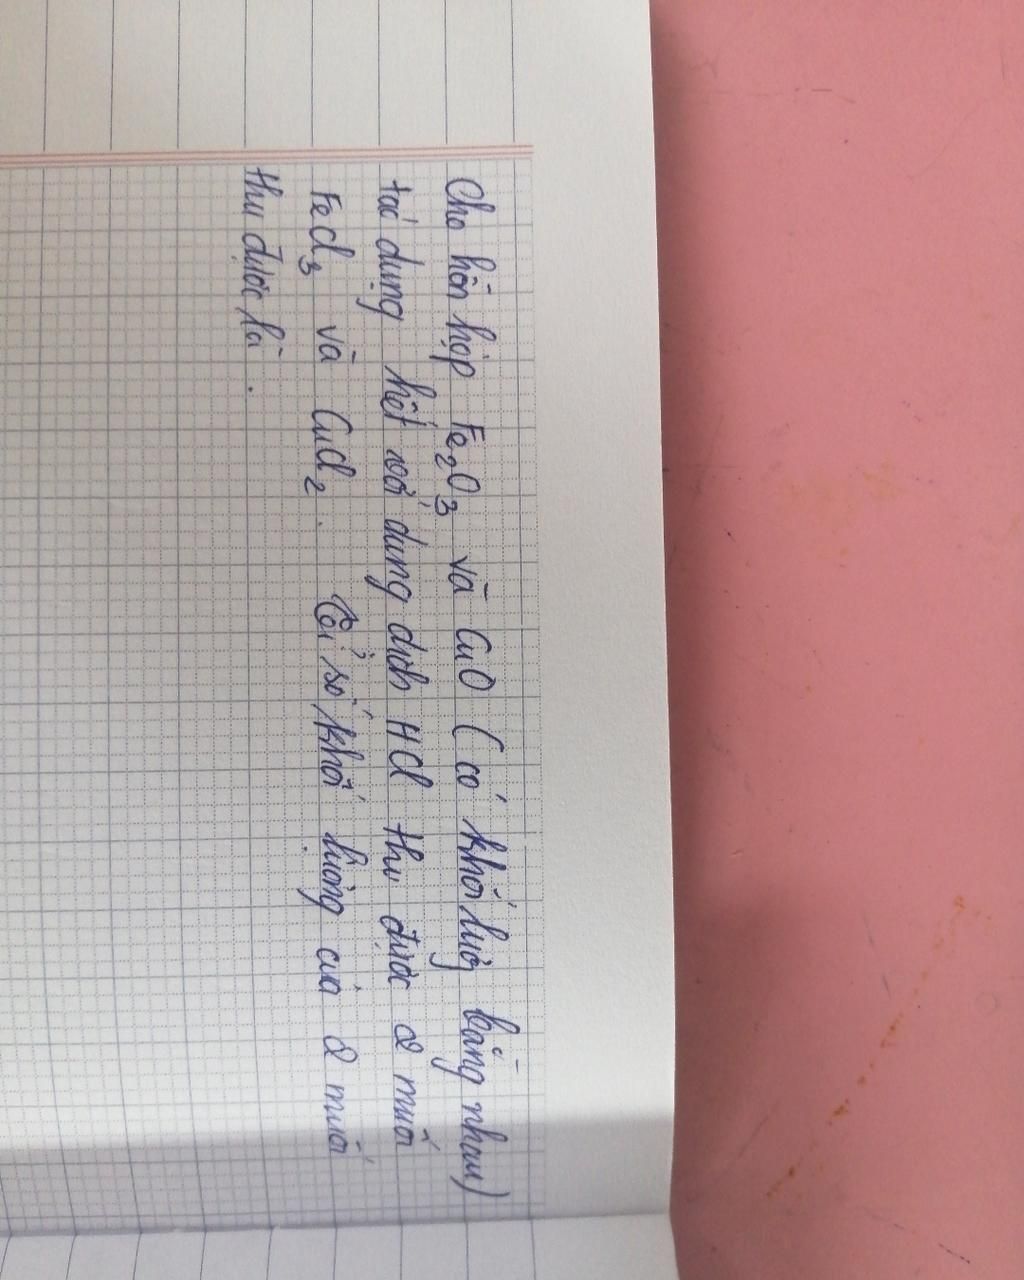 Cho hỗn hợp Fe₂O₃ và CuO (có khối lượng bằng nhau)
tác dụng hết với dung dịch HCl thu được 2 muối
FeCl₃ và CuCl₂. Tỉ số khối lượng của 2 muối
thu được là.